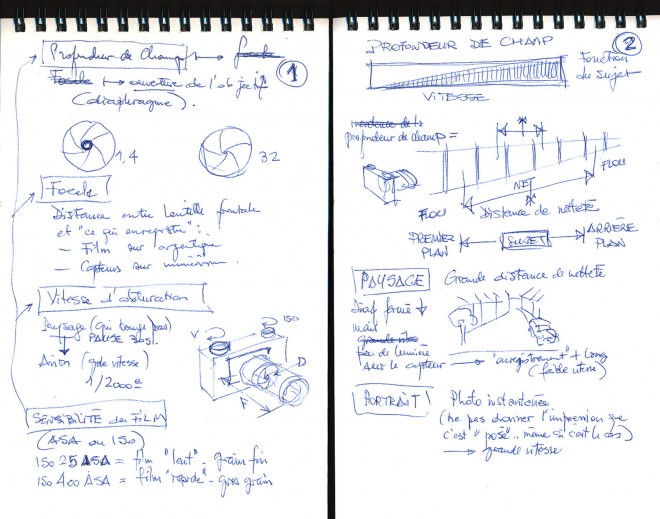 Profondeur de Champ
1
ouverture de l'objectif
(diaphragme).
1,4
32
Focale
Distance entre lentille frontale
et "ce qui enregistre":
- Film sur argentique
- Capteurs sur numérique.
Vitesse d'obturation
Paysage (qui bouge pas)
PAUSE 30s!
ISO
V
Avion (gde vitesse)
1/2000e
D
F
SENSIBILITÉ du FILM
(ASA ou ISO)
ISO 25 ASA = film "lent" - grain fin
ISO 400 ASA = film "rapide" - gros grain
PROFONDEUR DE CHAMP
2
Fonction
du sujet
VITESSE
profondeur de champ =
FLOU
NET
FLOU
Distance de netteté
PREMIER
PLAN
SUJET
ARRIÈRE
PLAN
PAYSAGE
Grande distance de netteté
Diaf fermé
mais
peu de lumière
sur le capteur
"enregistrement" + long
(faible vitesse)
PORTRAIT
Photo instantanée
(ne pas donner l'impression que
c'est "posé".. même si c'est le cas)
grande vitesse